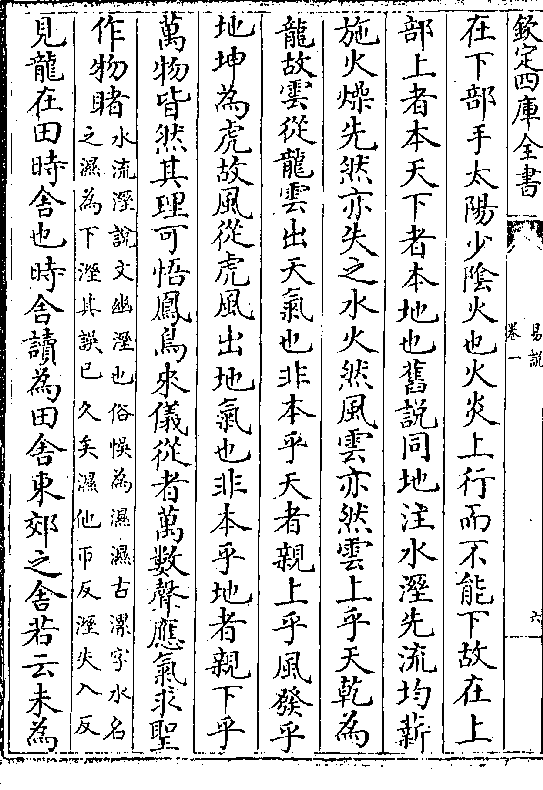 欽定四庫全書
易說
卷一
六
在下部手太陽少陰火也火炎上行而不能下故在上
部上者本天下者本地也舊說同地注水溼先流均薪
施火燥先然亦失之水火然風雲亦然雲上乎天乾為
龍故雲從龍雲出天氣也非本乎天者親上乎風發乎
地坤為虎故風從虎風出地氣也非本乎地者親下乎
萬物皆然其理可悟鳳鳥來儀從者萬數聲應氣求聖
作物睹
水流溼說文幽溼也俗悞為濕濕古漯字水名
之濕為下溼其誤已久矣濕他帀反溼失入反
見龍在田時舍也時舍讀為田舍東郊之舍若云未為